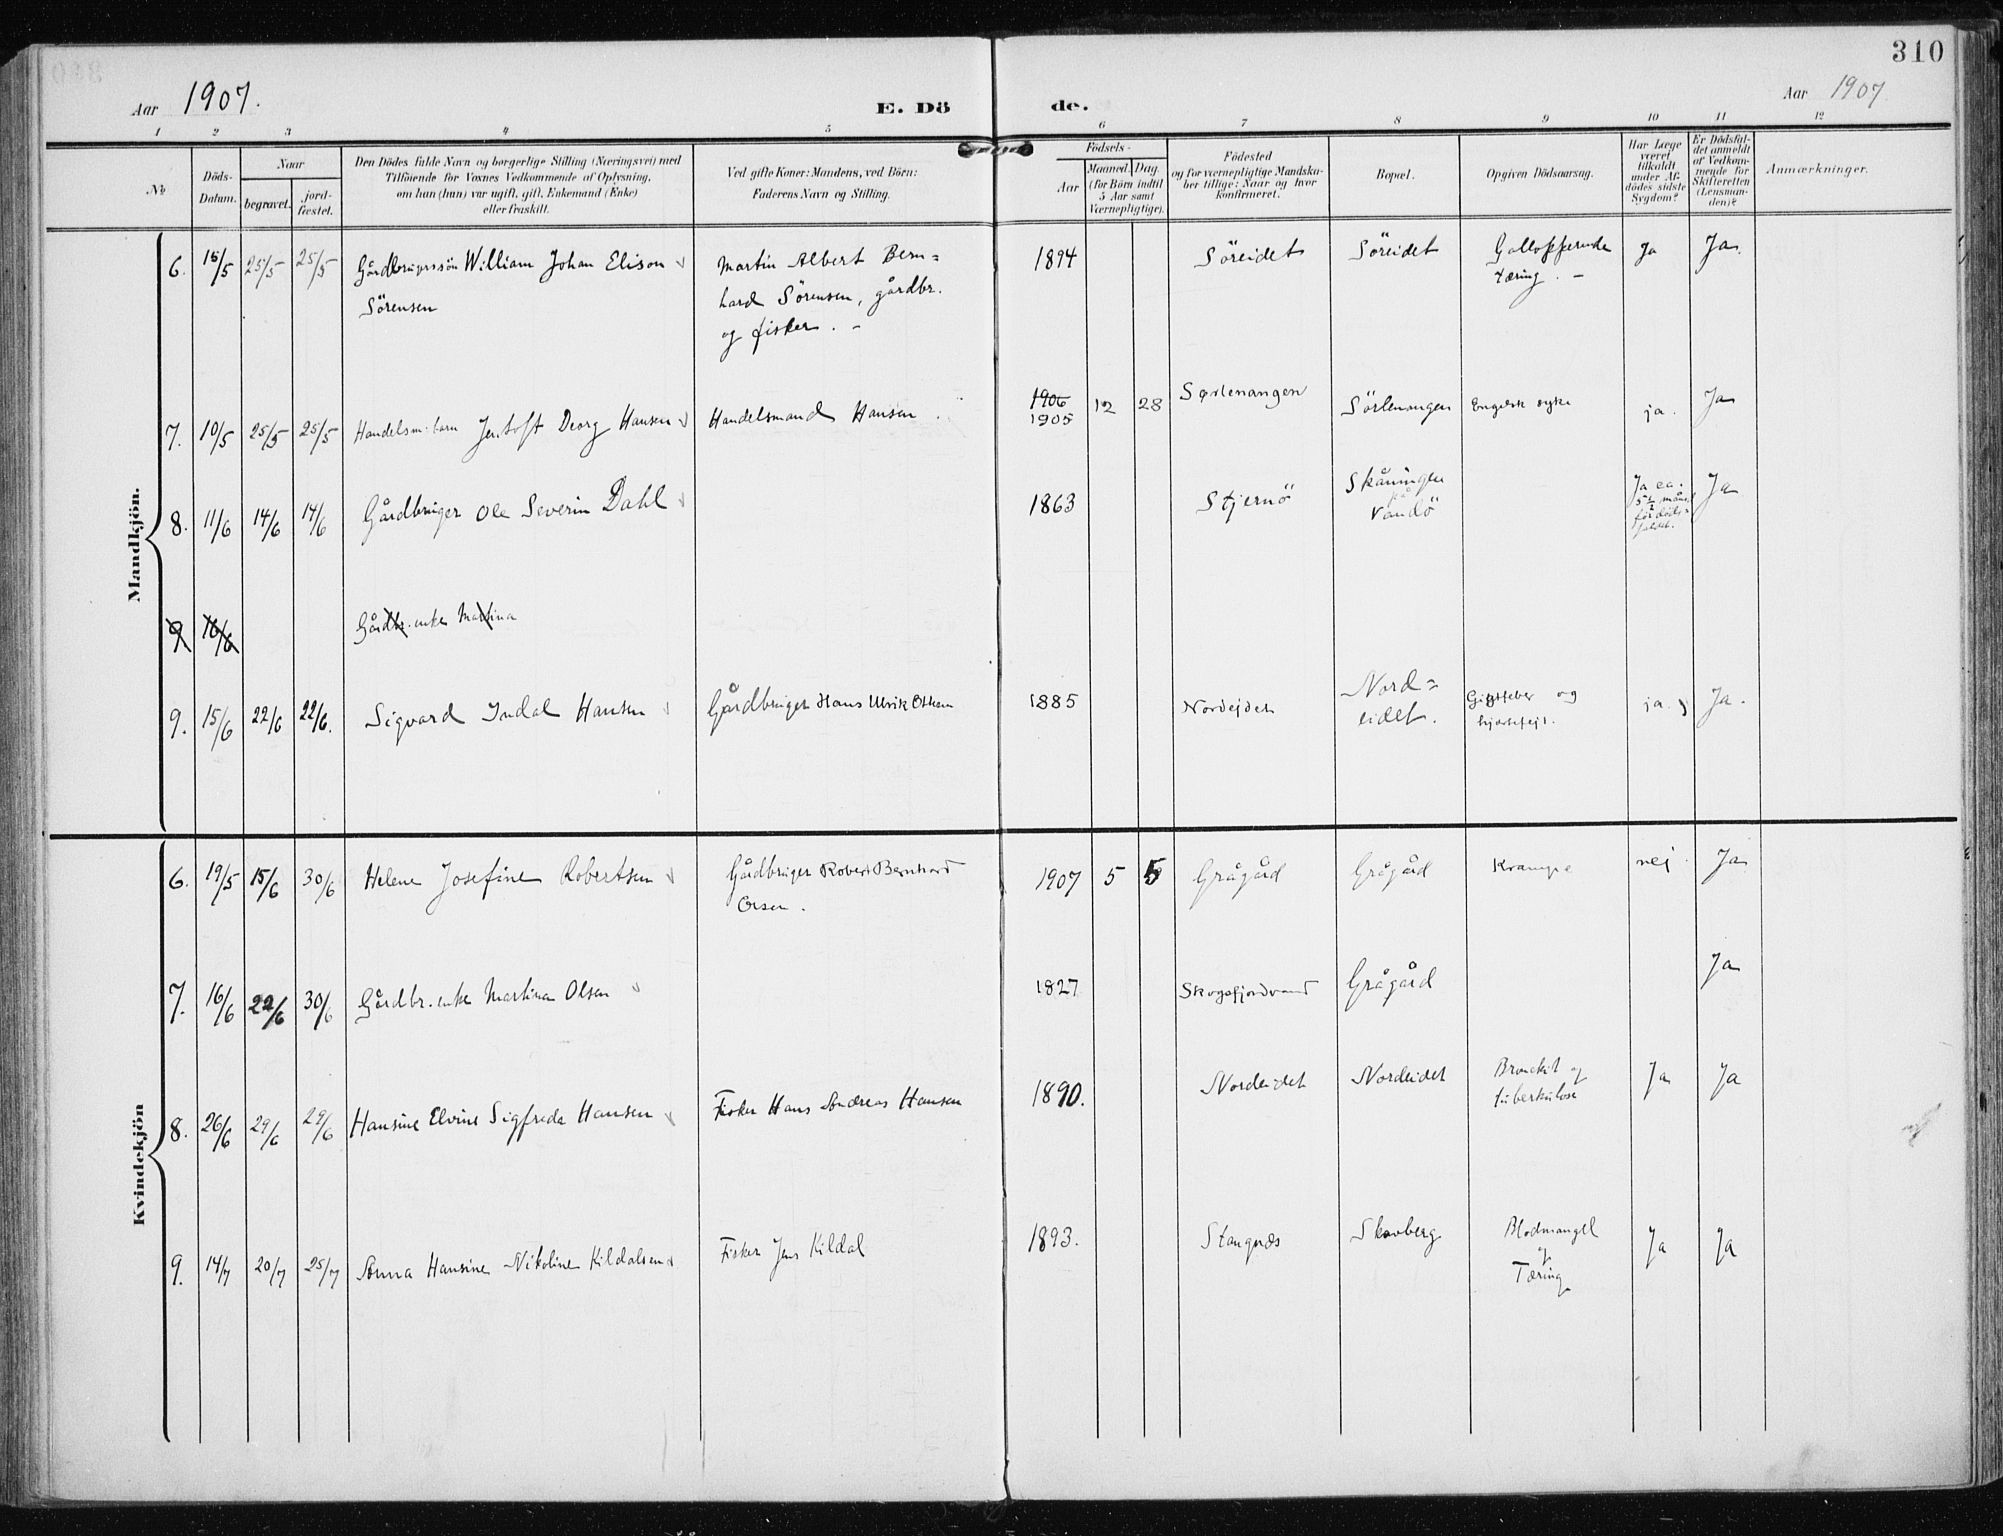 310
Aar 1907.
E. Dö de.
Aar 1907
1 2 3 4 5 6 7 8 9 10 11 12
No.
Döds-Datum.
Naar
begravet.
jord-fæstet.
Den Dödes fulde Navn og borgerlige Stilling (Næringsvei) med
Tilföiende for Voxnes Vedkommende af Oplysning,
om han (hun) var ugift, gift, Enkemand (Enke)
eller fraskilt.
Ved gifte Koner: Mandens, ved Börn:
Faderens Navn og Stilling.
Födsels-
Aar
Maaned. Dag.
(for Börn indtil
5 Aar samt
Værnepligtige).
Födested
og for værnepligtige Mandska-
ber tillige: Naar og hvor
konfirmeret.
Bopæl.
Opgiven Dödsaarsag.
Har Læge
været
tilkaldt
under Af-
dödes sidste
Sygdom?
Er Dödsfal-
det anmeldt
af Vedkom-
mende for
Skifteretten
(Lensman-
den)?
Anmærkninger.
Mandkjön.
6. 15/5 25/5 25/5 Gårdbrugerssön William Johan Elison Martin Albert Bern= 1894 Söreidet Söreidet Galloperende Ja Ja.
Sörensen hard Sörensen, gårdbr. tæring. –
og fisker. –
7. 10/5 25/5 25/5 Handelsm. barn Jentoft Georg Hansen Handelsmand Hansen. 1906 12 28 Sørlenangen Sörlenangen Engelsk syke ja. Ja
1905
8. 11/6 14/6 14/6 Gårdbruger Ole Severin Dahl 1863 Stjernö Skåningen Ja ca. Ja
på
Vandö
9 16/6 Gårdbr. enke Martina
9. 15/6 22/6 22/6. Sigvard Indal Hansen Gårdbruger Hans Ulrik Olsen 1885 Nordejdet Nord= Gigtfeber og ja. Ja.
eidet. hjertefejl.
Kvindekjön
6. 19/5 15/6 30/6 Helene Josefine Robertsen Gårdbruger Robert Bernhard 1907 5 5 Grågård Grågård Krampe nej. Ja
Olsen.
7. 16/6 22/6 30/6 Gårdbr. enke Martina Olsen 1827 Skogsfjordvand Grågård Ja
8. 26/6 29/6 29/6 Hansine Elvine Sigfreda Hansen Fisker Hans Andreas Hansen 1890. Nordeidet Nordeidet Bronckit og Ja Ja
tuberkulose
9. 14/7 20/7 25/7 Anna Hansine Nikoline Kildalsen Fisker Jens Kildal 1893. Stangnæs Skavberg Blodmangel Ja Ja
og
Tæring